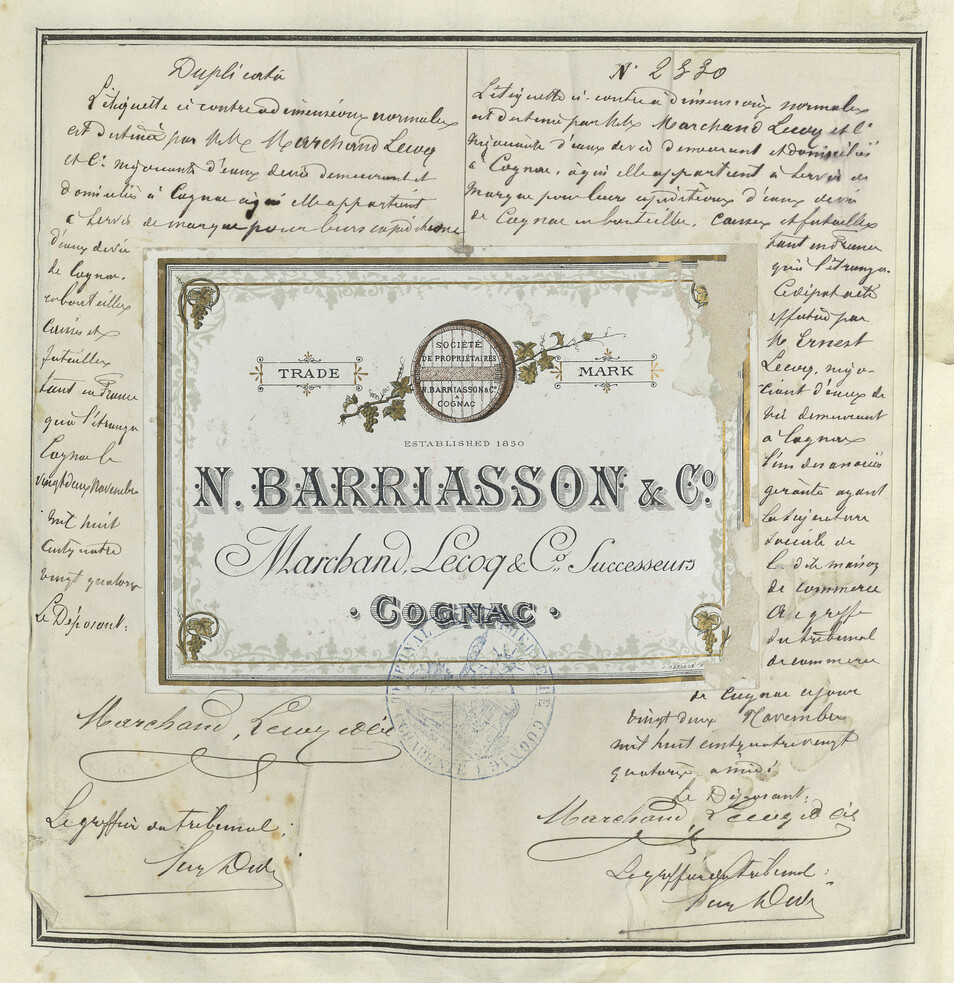 Duplicata
L'étiquette ci contre à dimensions normales
est destinée par MM Marchand Lecoq
et Cie négociants d'eaux de vie demeurant et
domiciliés à Cognac à qui elle appartient
à servir de marque pour leurs expéditions
d'eaux de vie
de Cognac,
en bouteilles
Caisses et
futailles
tant en France
qu'à l'étranger
Cognac le
vingt deux Novembre
mil huit
cent quatre
vingt quatorze
Le Déposant:
Marchand, Lecoq & Cie
Le greffier du tribunal:
N° 2330
L'étiquette ci-contre à dimensions normales
est destinée par MM Marchand Lecoq et Cie
négociants d'eaux de vie demeurant et domiciliés
à Cognac, à qui elle appartient à servir de
marque pour leurs expéditions d'eaux de vie
de Cognac en bouteilles, caisses et futailles
tant en France
qu'à l'étranger.
Ce dépôt a été
effectué par
M Ernest
Lecoq, négo-
ciant d'eaux de
vie demeurant
à Cognac
l'un des associés
gérants ayant
la signature
sociale de
la dite maison
de commerce
Au greffe
du tribunal
de commerce
de Cognac ce jour
vingt deux Novembre
mil huit cent quatre vingt
quatorze à midi:
Le Déposant:
Marchand Lecoq & Cie
Le greffier du tribunal:
TRADE
MARK
SOCIÉTÉ
DE PROPRIÉTAIRES
N. BARRIASSON & Co
À
COGNAC
ESTABLISHED 1850
N. BARRIASSON & Co.
Marchand, Lecoq & Co. Successeurs
· COGNAC ·
TRIBUNAL DE COMMERCE
COGNAC
(CHARENTE)